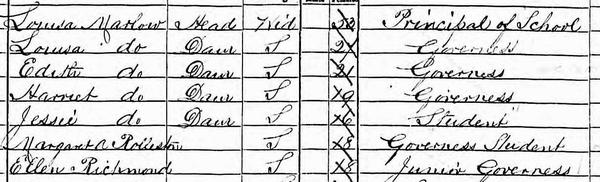 Louisa Marlow Head Wid 52 Principal of School
Louisa do Daur S 24 Governess
Edith do Daur S 21 Governess
Harriet do Daur S 19 Governess
Jessie do Daur S 16 Student
Margaret A Rolleston S 18 Governess Student
Ellen Richmond S 18 Junior Governess